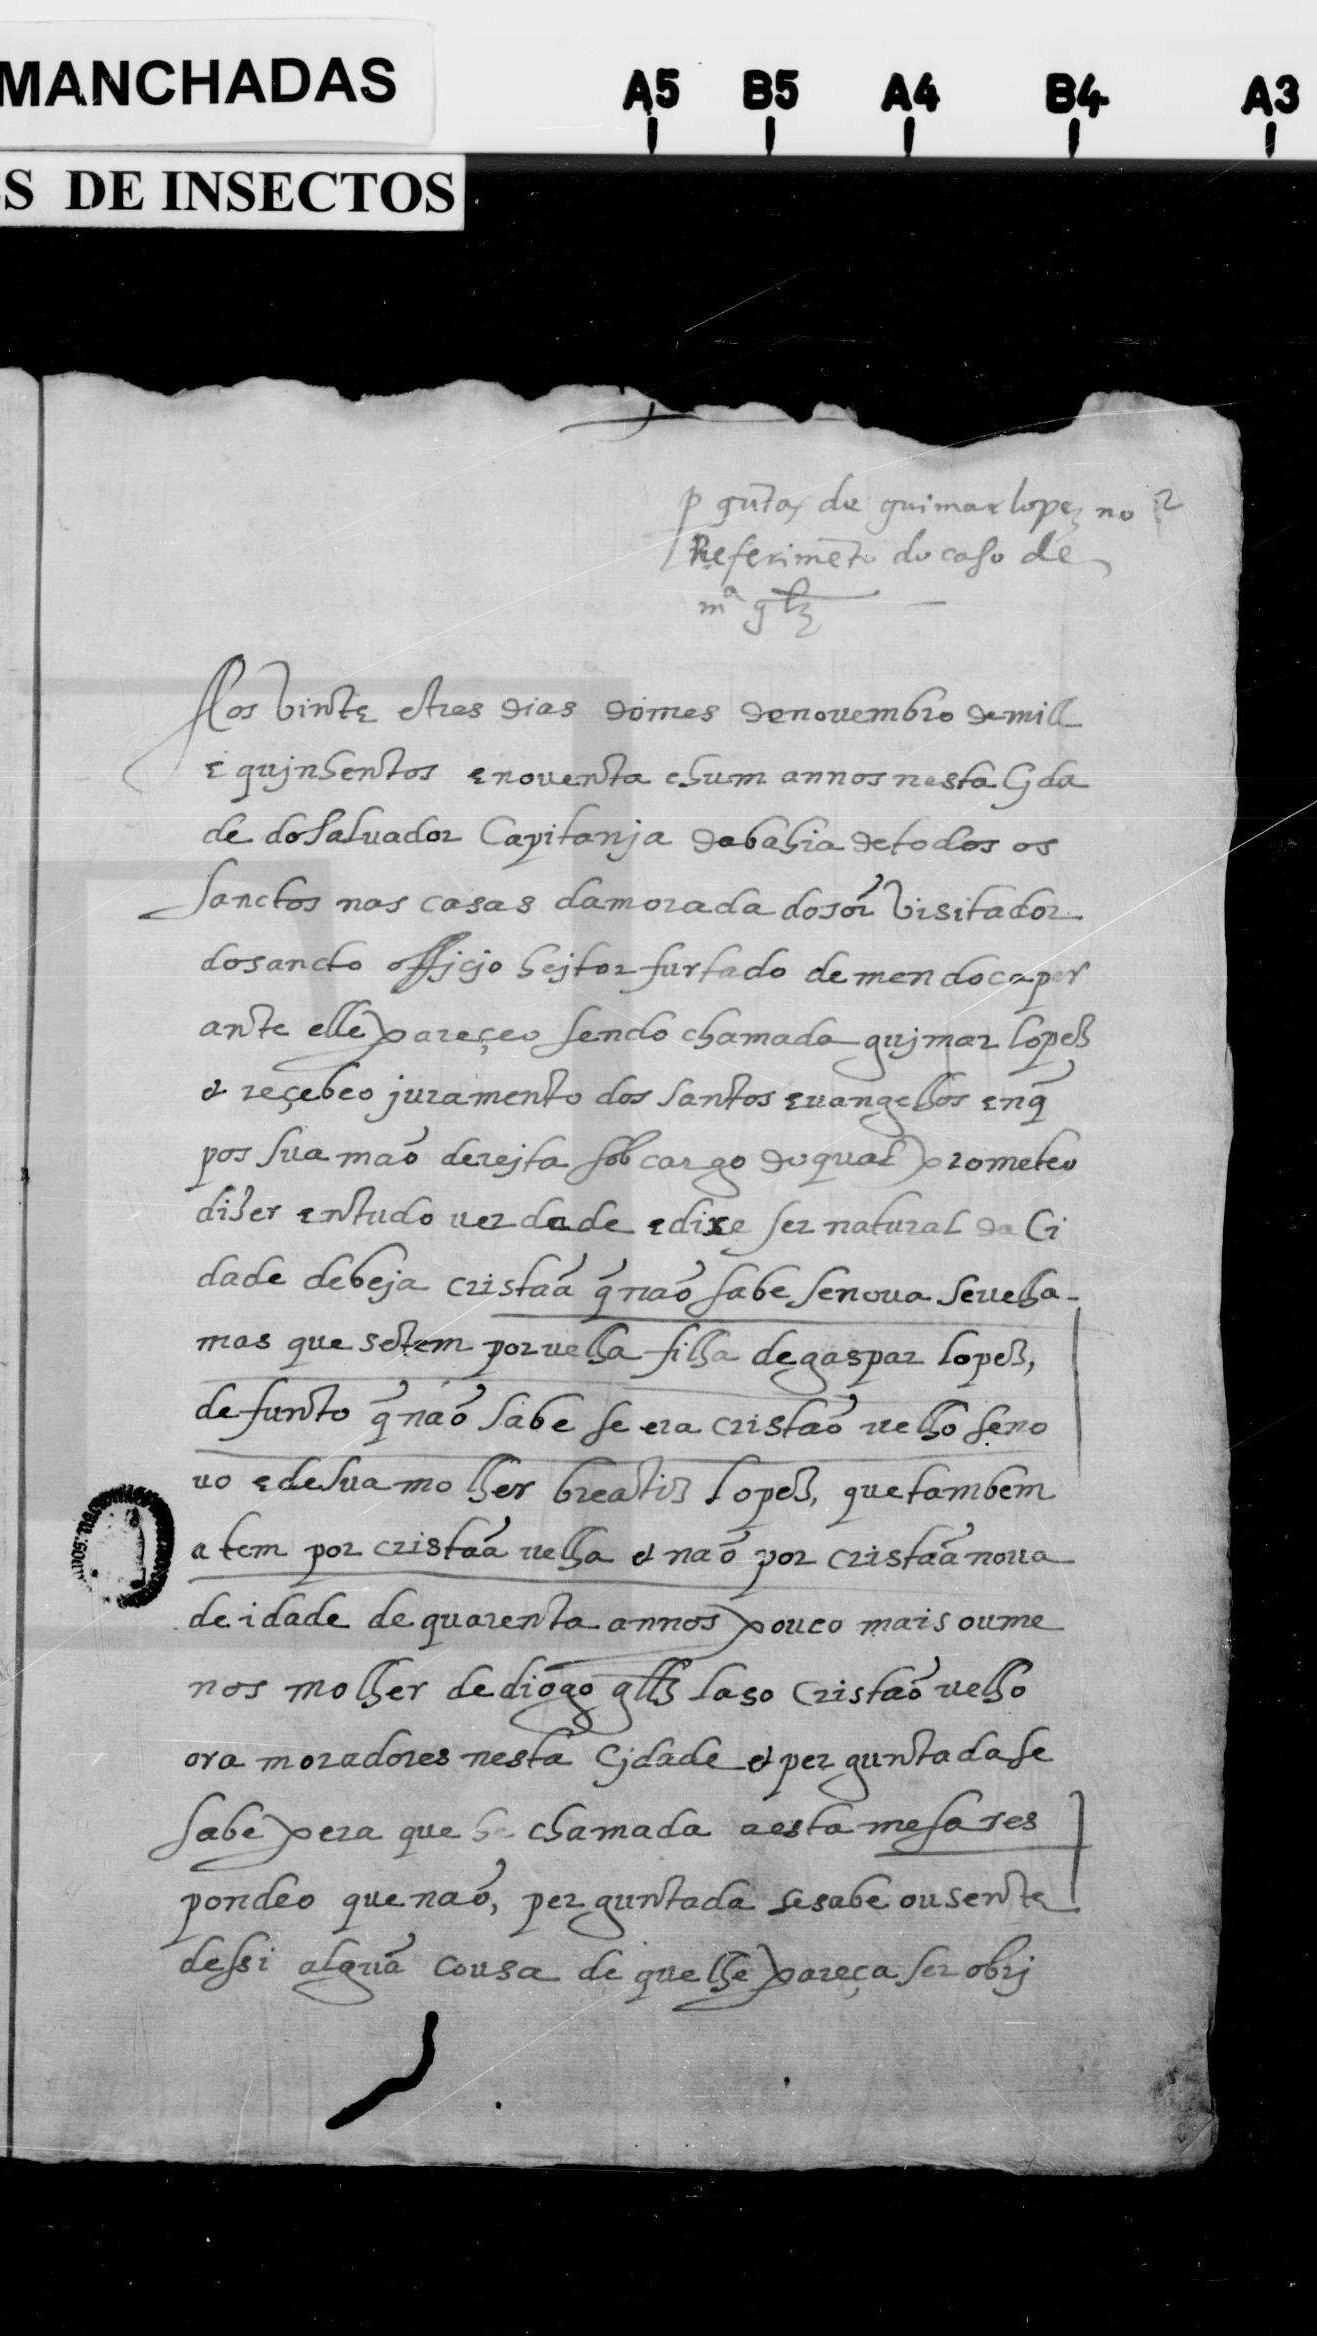 MANCHADAS
A5 B5 A4 B4 A3
S DE INSECTOS
pgūtas de guimar lopez no
Referimēto do caso de
mª glz
Aos Vinte e tres dias do mes de novembro de mill
e quinhentos e noventa e hum annos nesta Cida
de do Saluador Capitanja da bahia de todos os
Sanctos nas casas da morada do sõr Visitador
do sancto officio heitor furtado de mendoca per
ante elle pareçeo sendo chamada guimar lopes
& reçebeo juramento dos santos euangelhos en q̃
pos sua mão dereita sob cargo do qual prometeo
diser en tudo verdade e dixe ser natural da Ci
dade de beja cristaã q̃ não sabe se noua se uelha
mas que se tem por uelha filha de gaspar lopes,
defunto q̃ não sabe se era cristaõ uelho se no
uo e de sua molher breatis lopes, que tambem
a tem por cristaã uelha & não por cristaã noua
de idade de quarenta annos pouco mais ou me
nos molher de diogo glz laso cristaõ uelho
ora moradores nesta Cidade & perguntada se
sabe pera que he chamada a esta mesa res
pondeo que não, perguntada se sabe ou sente
de ssi alguã cousa de que lhe pareça ser obri